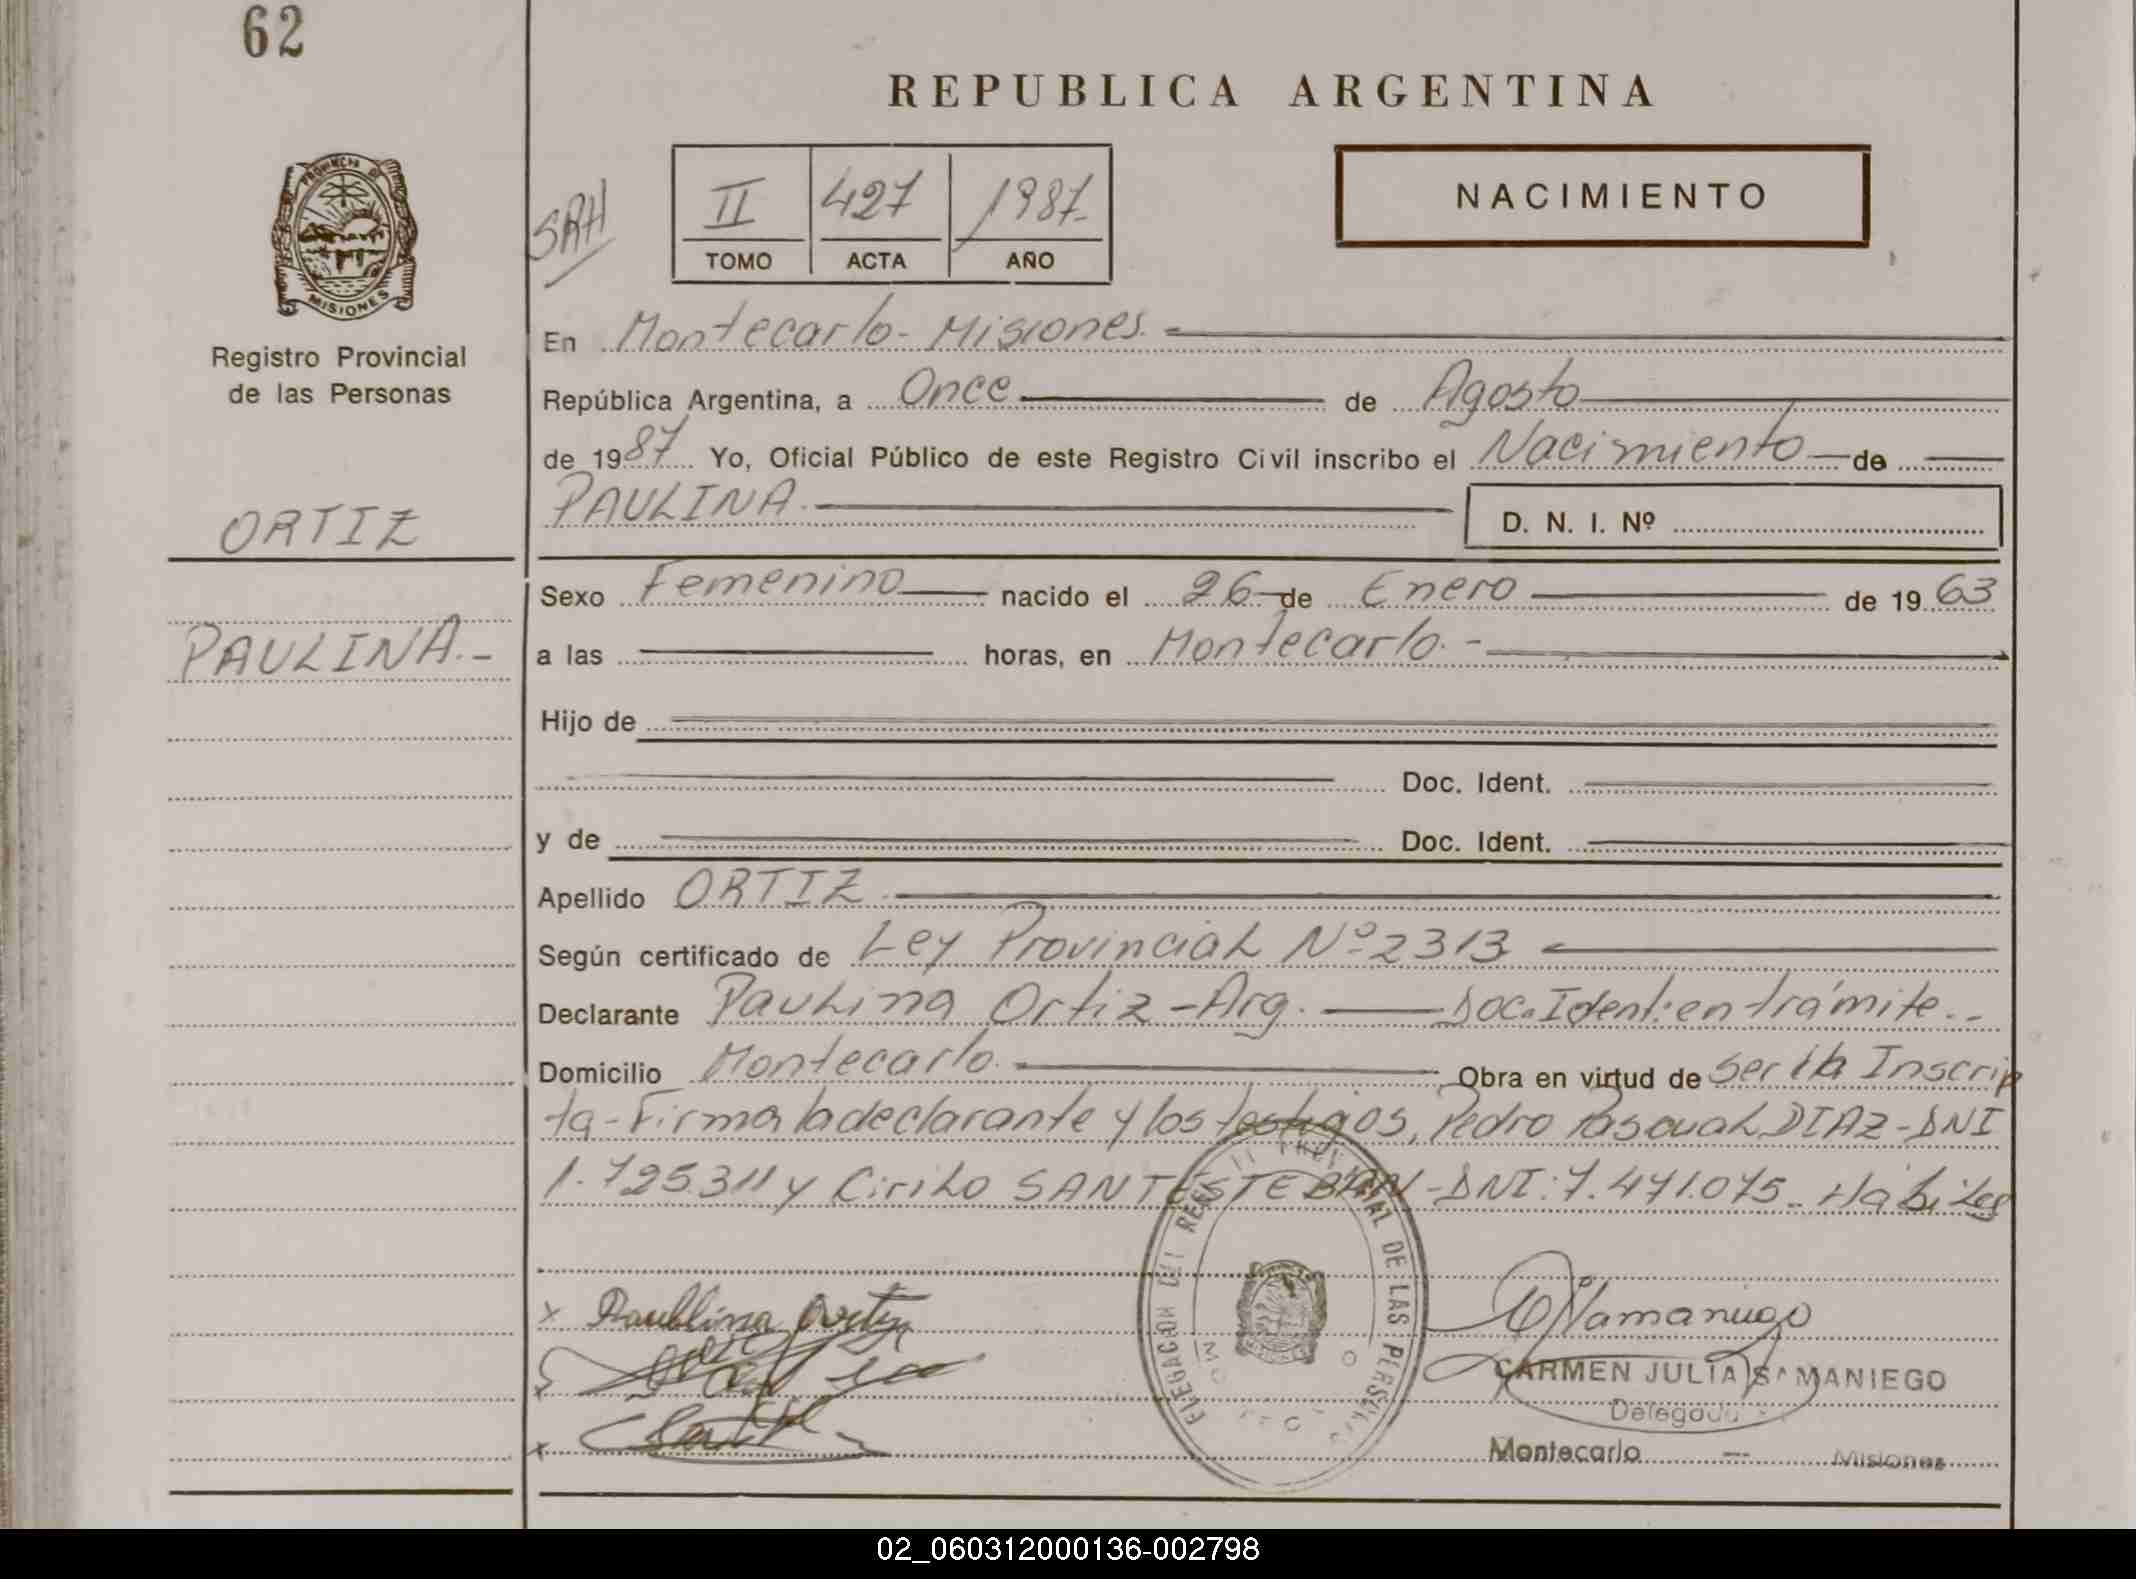 62
REPUBLICA ARGENTINA
NACIMIENTO
SRH
II 427 1987.-
TOMO ACTA AÑO
PROVINCIA DE
MISIONES
Registro Provincial
de las Personas
ORTIZ
PAULINA.-
En Montecarlo - Misiones.
República Argentina, a Once de Agosto
de 1987 Yo, Oficial Público de este Registro Civil inscribo el Nacimiento de
PAULINA. D. N. I. Nº
Sexo Femenino nacido el 26 de Enero de 1963
a las horas, en Montecarlo.-
Hijo de
Doc. Ident.
y de Doc. Ident.
Apellido ORTIZ
Según certificado de Ley Provincial Nº 2313
Declarante Paulina Ortiz - Arg. Doc. Ident: en trámite.-
Domicilio Montecarlo. Obra en virtud de ser la Inscrip
ta - Firma la declarante y los testigos, Pedro Pascual DIAZ - DNI
1.725.311 y Cirilo SANTESTEBAN - DNI: 7.471.075.- Hábiles
x Paublina Ortiz
CARMEN JULIA SAMANIEGO
Delegada
Montecarlo - Misiones
02_060312000136-002798